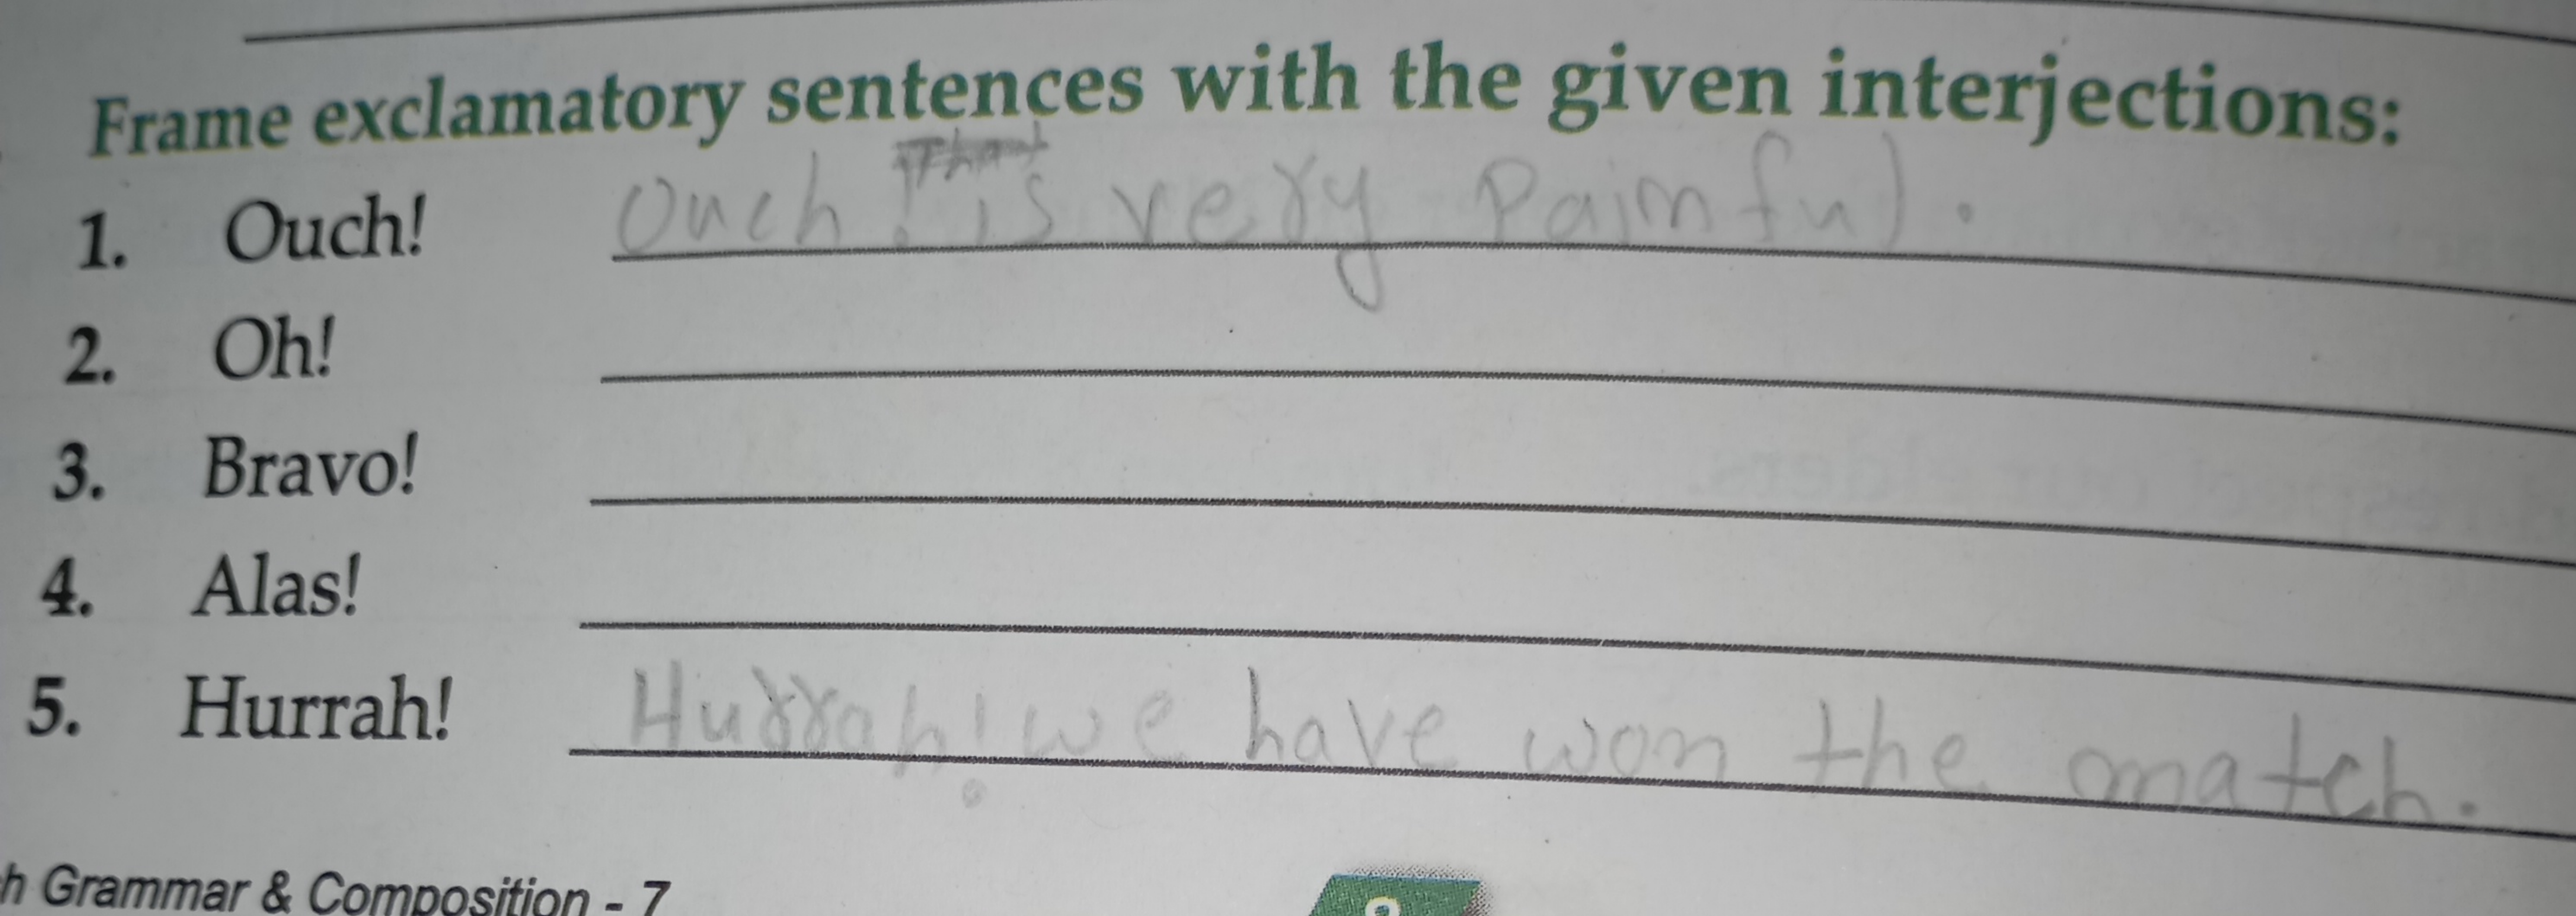 Frame exclamatory sentences with the given interjections:
1. Ouch! Ouch! That is very Painful.
2. Oh!
3. Bravo!
4. Alas!
5. Hurrah! Hurrah! we have won the match.
h Grammar & Composition - 7